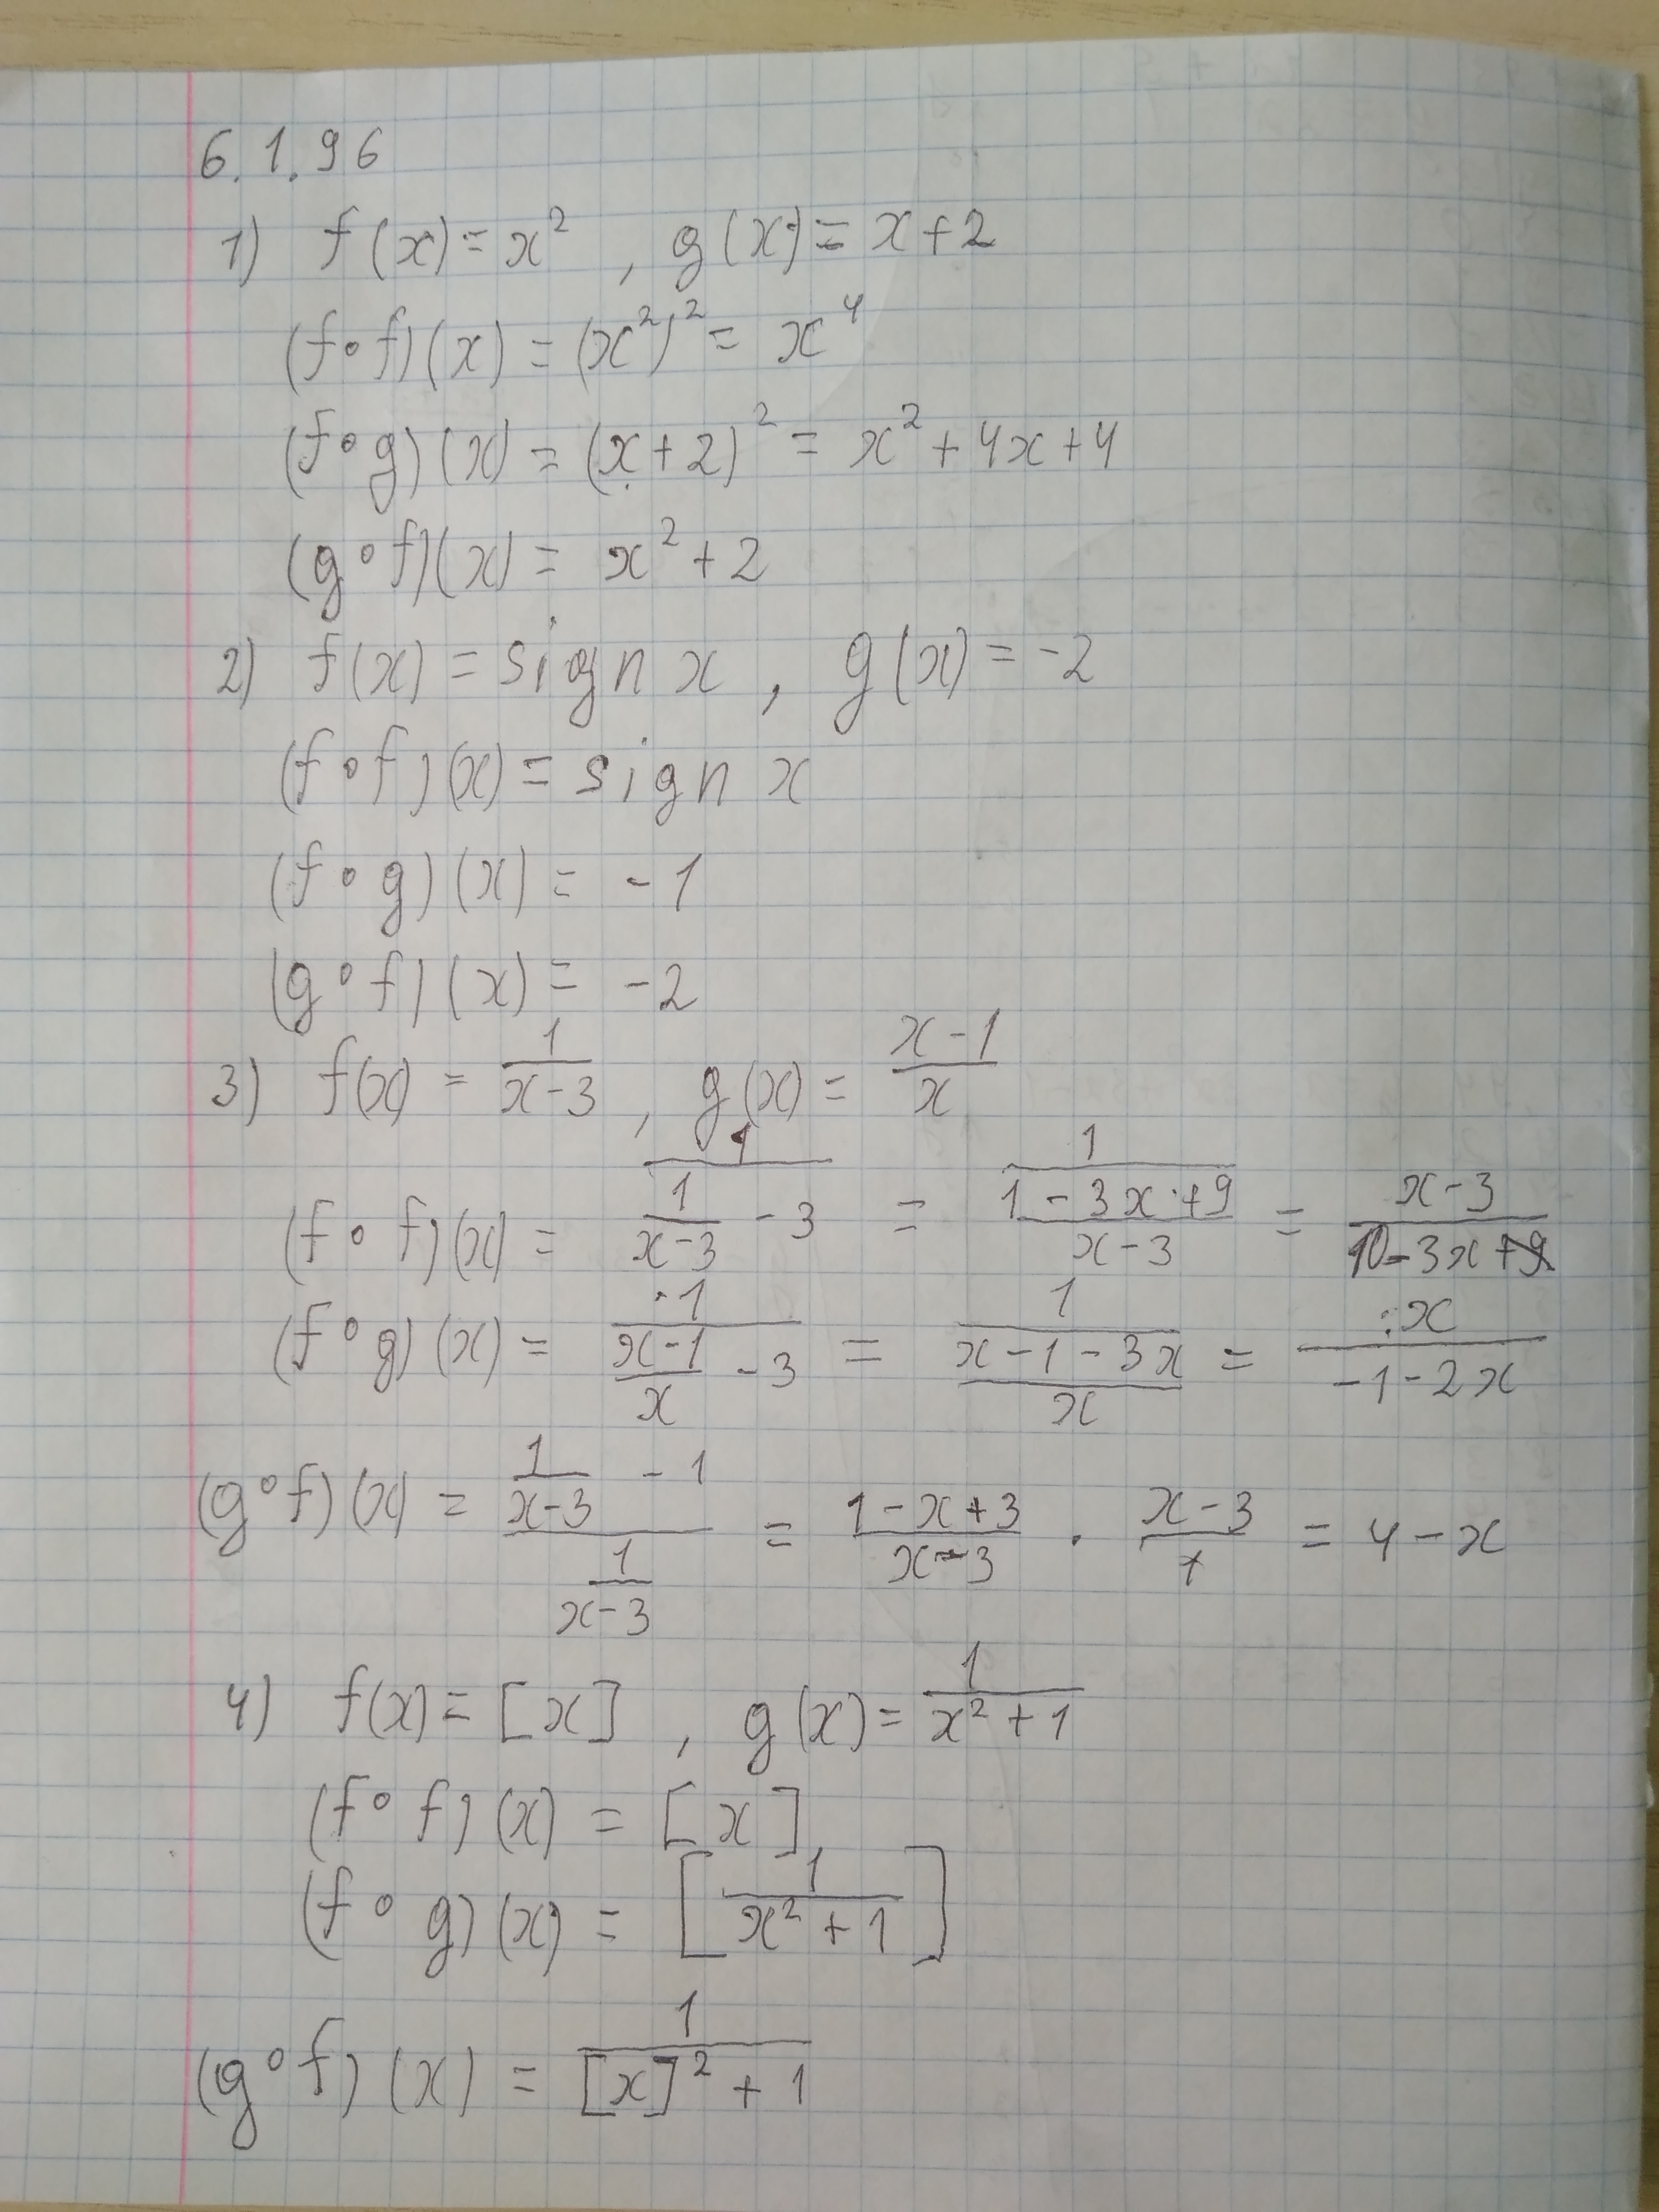 6.1.96
1) f(x) = x², g(x) = x+2
(f∘f)(x) = (x²)² = x⁴
(f∘g)(x) = (x+2)² = x²+4x+4
(g∘f)(x) = x²+2
2) f(x) = sign x, g(x) = -2
(f∘f)(x) = sign x
(f∘g)(x) = -1
(g∘f)(x) = -2
3) f(x) = 1/(x-3), g(x) = (x-1)/x
(f∘f)(x) = 1/(1/(x-3) - 3) = 1/((1-3x+9)/(x-3)) = (x-3)/(10-3x)
(f∘g)(x) = 1/((x-1)/x - 3) = 1/((x-1-3x)/x) = x/(-1-2x)
(g∘f)(x) = (1/(x-3) - 1)/(1/(x-3)) = (1-x+3)/(x-3) · (x-3)/1 = 4-x
4) f(x) = [x], g(x) = 1/(x²+1)
(f∘f)(x) = [x]
(f∘g)(x) = [1/(x²+1)]
(g∘f)(x) = 1/([x]²+1)